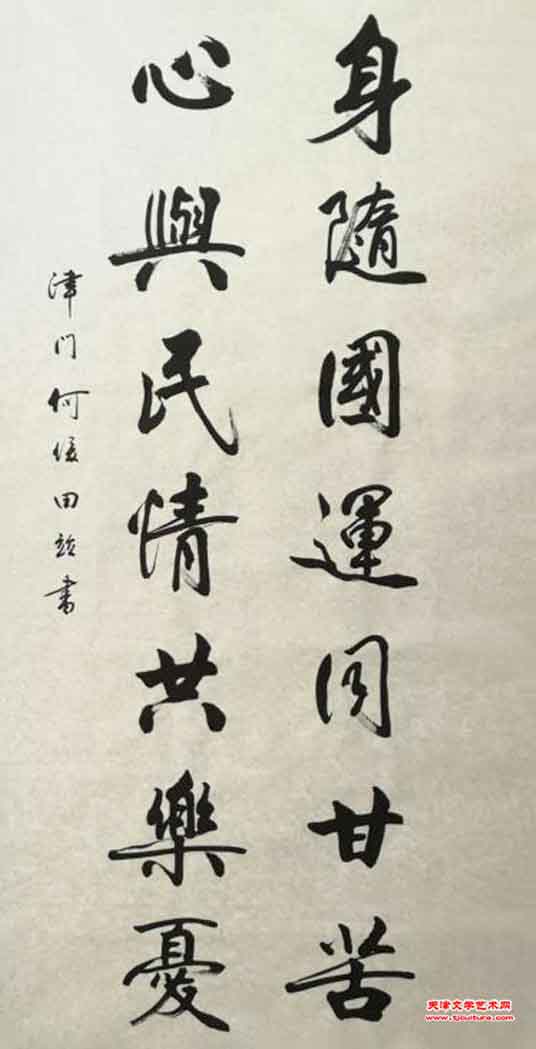 身隨國運同甘苦
心與民情共樂憂
津门何俊田敬書
天津文学艺术网
www.tjculture.com